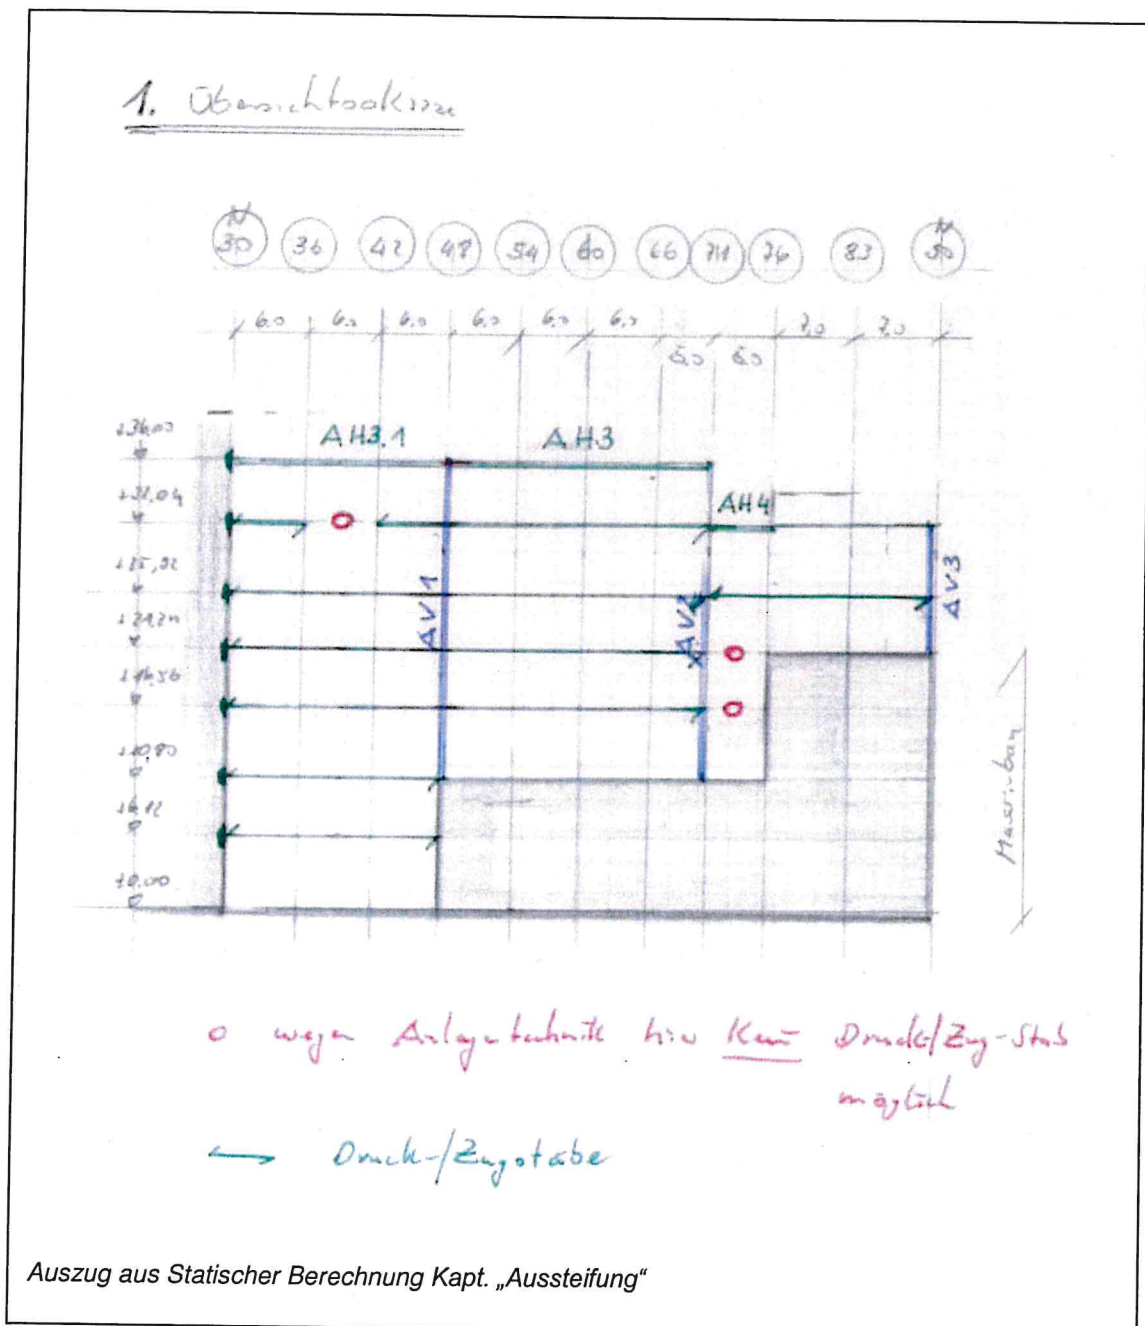 1. Übersichtsskizze
N N
30 36 42 48 54 60 66 71 76 83 90
6.0 6.0 6.0 6.0 6.0 6.0 7.0 7.0
5.0 5.0
AH3.1 AH3
AH4
AV1 AV2 AV3
+10,80
±0.00
Massivbau
o wegen Anlagentechnik hier Kein Druck/Zug-Stab
möglich
Druck-/Zugstäbe
Auszug aus Statischer Berechnung Kapt. „Aussteifung“